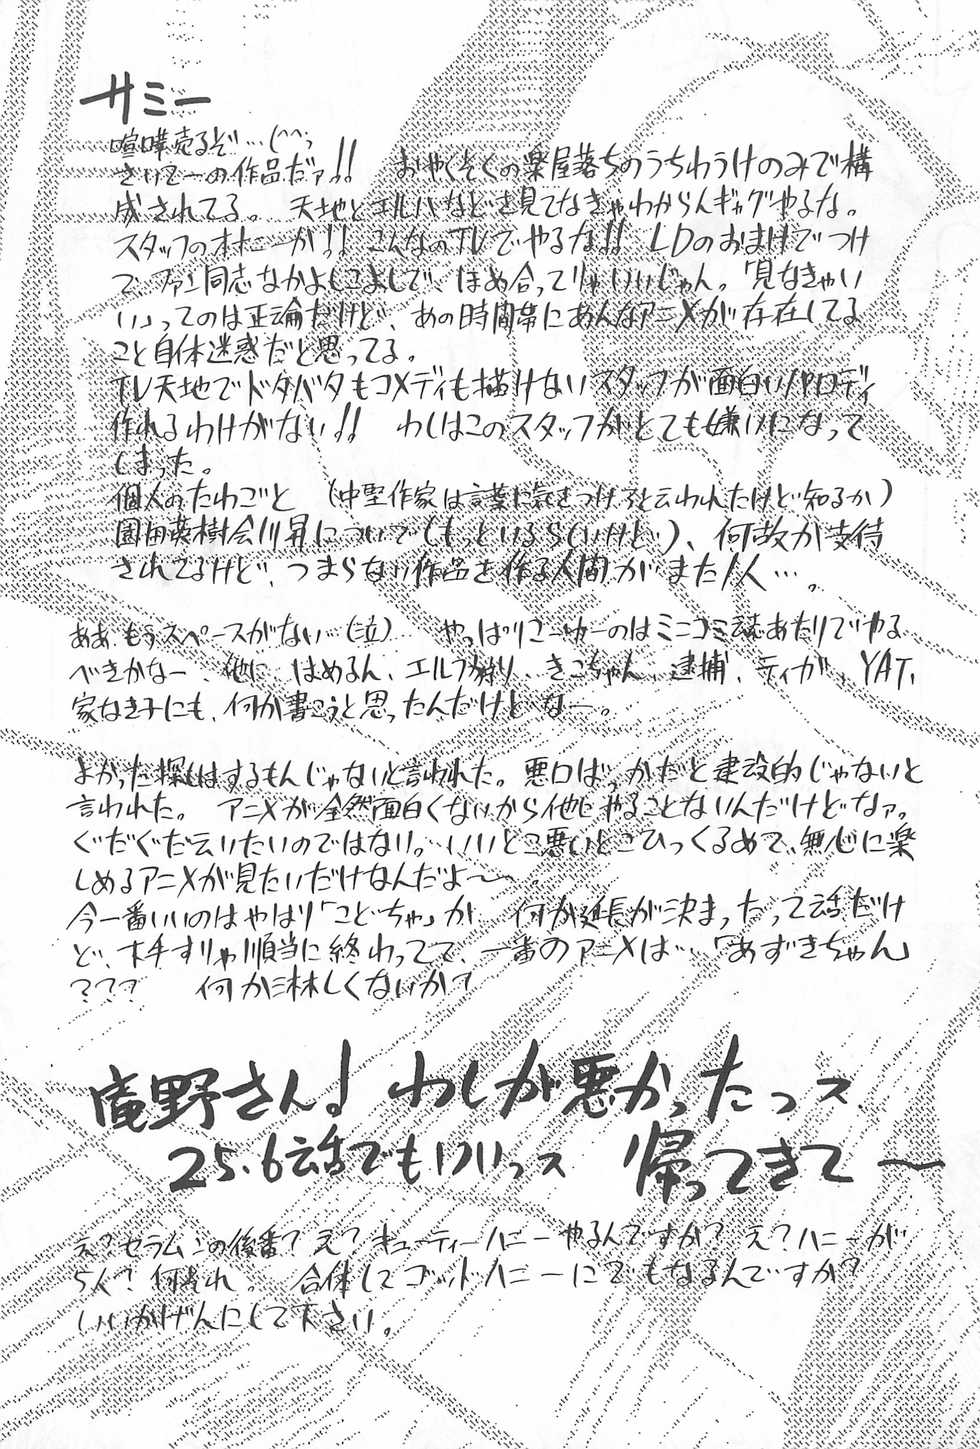 サミー
喧嘩売るぞ…(^^;
さいてーの作品だァ!! おやくそくの楽屋落ちのうちわうけのみで構
成されてる。 天地とエルハなどを見てなきゃわからんギャグやるな。
スタッフのオナニーか!! こんなのTVでやるな!! LDのおまけでつけ
で、ファン同志なかよしこよしで、ほめ合ってりゃいいじゃん。「見なきゃい
い」ってのは正論だけど、あの時間帯にあんなアニメが存在してる
こと自体迷惑だと思ってる。
TV天地でドタバタもコメディも描けないスタッフが面白いパロディ
作れるわけがない!! わしはこのスタッフがとても嫌いになって
しまった。
個人のたわごと (中堅作家は言葉に気をつけろと云われたけど知るか)
園田英樹会川昇について(もっといるらしいけど)、何故か支持
されてるけど、つまらない作品を作る人間がまた1人…。
ああ、もうスペースがない…(泣) やっぱりこーゆーのはミニコミ誌あたりでやる
べきかなー、他に はめるん、エルフ狩り、きこちゃん、逮捕、ティガ、YAT、
家なき子にも、何か書こうと思ったんだけどなー。
よかった探しはするもんじゃないと言われた。悪口ばっかだと建設的じゃないと
言われた。 アニメが全然面白くないから他にやることないんだけどなァ。
ぐだぐだ云いたいのではない。…いいとこ悪いとこひっくるめて、無心に楽
しめるアニメが見たいだけなんだよ〜。
今一番いいのはやはり「こどちゃ」か 何か延長が決まったって話だけ
ど、下手すりゃ順当に終わってて、一番のアニメは…「あずきちゃん」
??? 何か淋しくないか?
庵野さん! わしが悪かったっス
25.6話でもいいっス 帰ってきて〜
え?セラムンの後番?え?キューティーハニーやるんですか?え?ハニーが
5人?何それ。 合体してゴッドハニーにでもなるんですか?
いいかげんにして下さい。